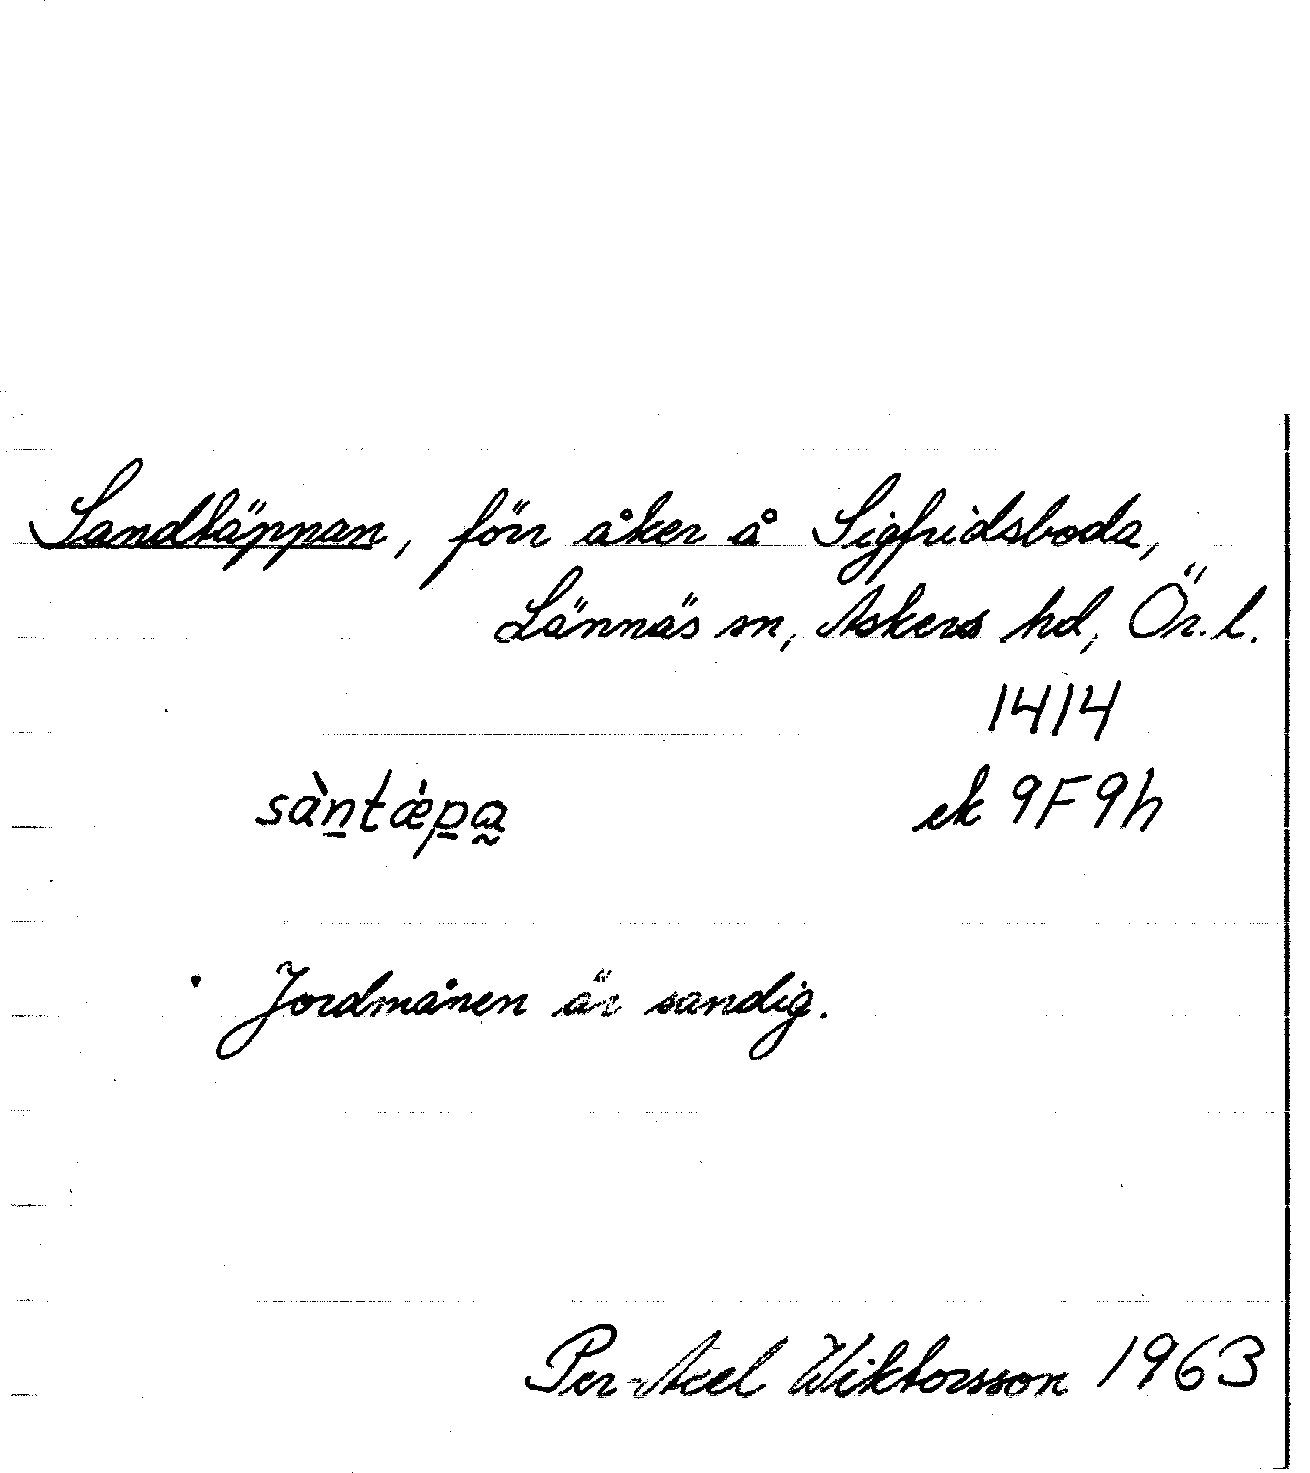 Sandtäppan, förr åker å Sigfridsboda,
Lännäs sn, Askers hd, Ör. l.
1414
sàn̠tǽp̠a̰ ek 9F9h
Jordmånen är sandig.
Per-Axel Wiktorsson 1963